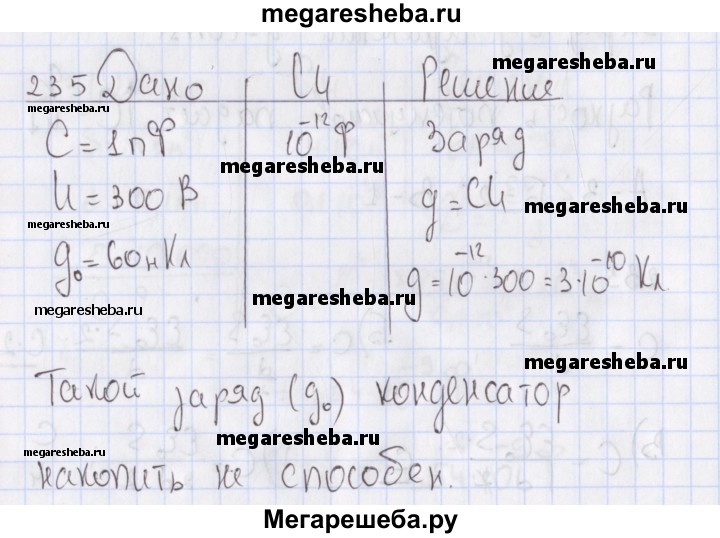 megaresheba.ru
megaresheba.ru
235 Дано СИ Решение
megaresheba.ru
C = 1 пФ 10^-12 Ф Заряд
megaresheba.ru
U = 300 В q = CU
megaresheba.ru
megaresheba.ru
q₀ = 60 нКл q = 10^-12 · 300 = 3 · 10^-10 Кл
megaresheba.ru
megaresheba.ru
megaresheba.ru
Такой заряд (q₀) конденсатор
megaresheba.ru
megaresheba.ru
накопить не способен.
Мегарешеба.ру